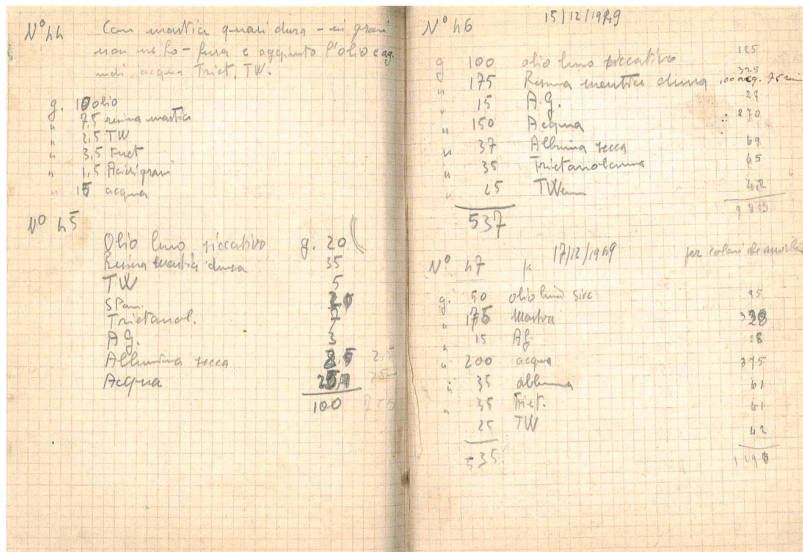 N° 44 Con mastice quasi dura – in grani
non molto – fusa e aggiunto l'olio e ag.
indi acqua Triet. TW.
g. 10 olio
" 7,5 resina mastice
" 2,5 TW
" 3,5 Triet
" 1,5 Acidi grassi
" 15 acqua
N° 45
Olio lino siccativo g. 20
Resina mastice dura 35
TW 5
Span
Trietanol. 7
A.G. 3
Albumina secca
Acqua
100
N° 46 15/12/1949
g 100 olio lino siccativo 185
" 175 Resina mastice dura 325
" 15 A.G. 28
" 150 Acqua 270
" 37 Albumina secca 69
" 35 Trietanolamina 65
" 25 TW
537
N° 47 17/12/1949 per colori
g. 50 olio lino sicc 95
" 175 Mastice
" 15 AG. 28
" 200 acqua 375
" 35 albumina 61
" 35 Triet. 61
25 TW 42
535